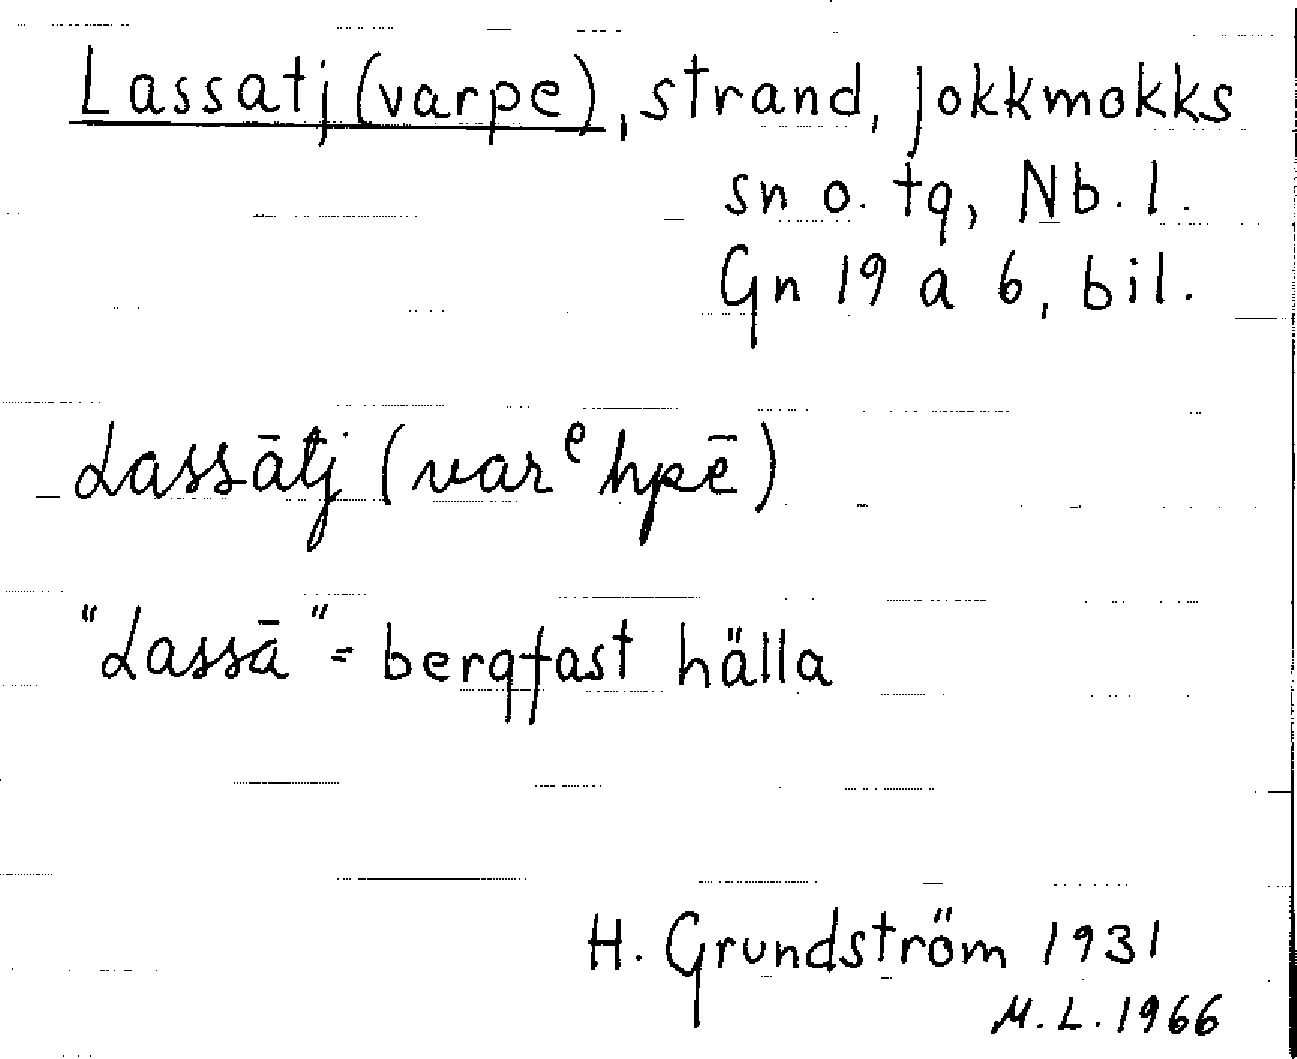 Lassatj (varpe), strand, Jokkmokks
sn o. tg, Nb. l.
Gn 19 a 6, bil.
Lassātj (varᵉhpē)
"Lassā" = bergfast hälla
H. Grundström 1931
M.L. 1966